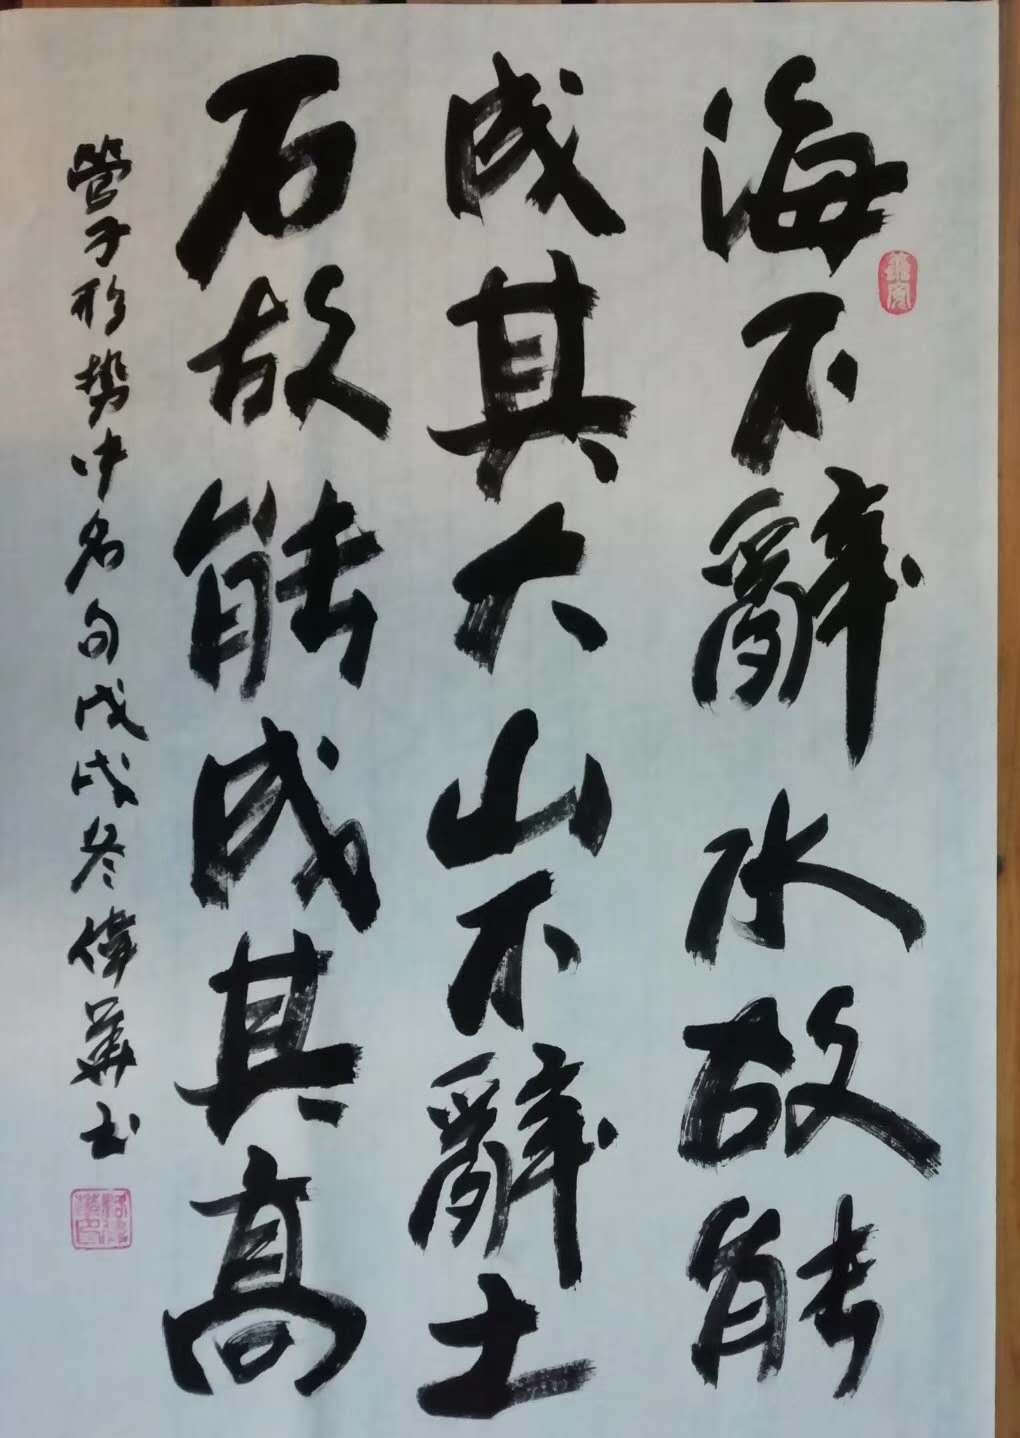 海不辭水故能
成其大山不辭土
石故能成其高
管子形势中名句戊戌冬偉華书